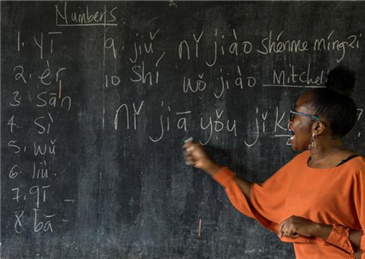 Numbers
1. yī
2. èr
3 sān
4. sì
5. wǔ
6. liù
7. qī
8 bā
9. jiǔ
10 shí
nǐ jiào shénme míngzi
wǒ jiào Mitchel
nǐ jiā yǒu jǐ